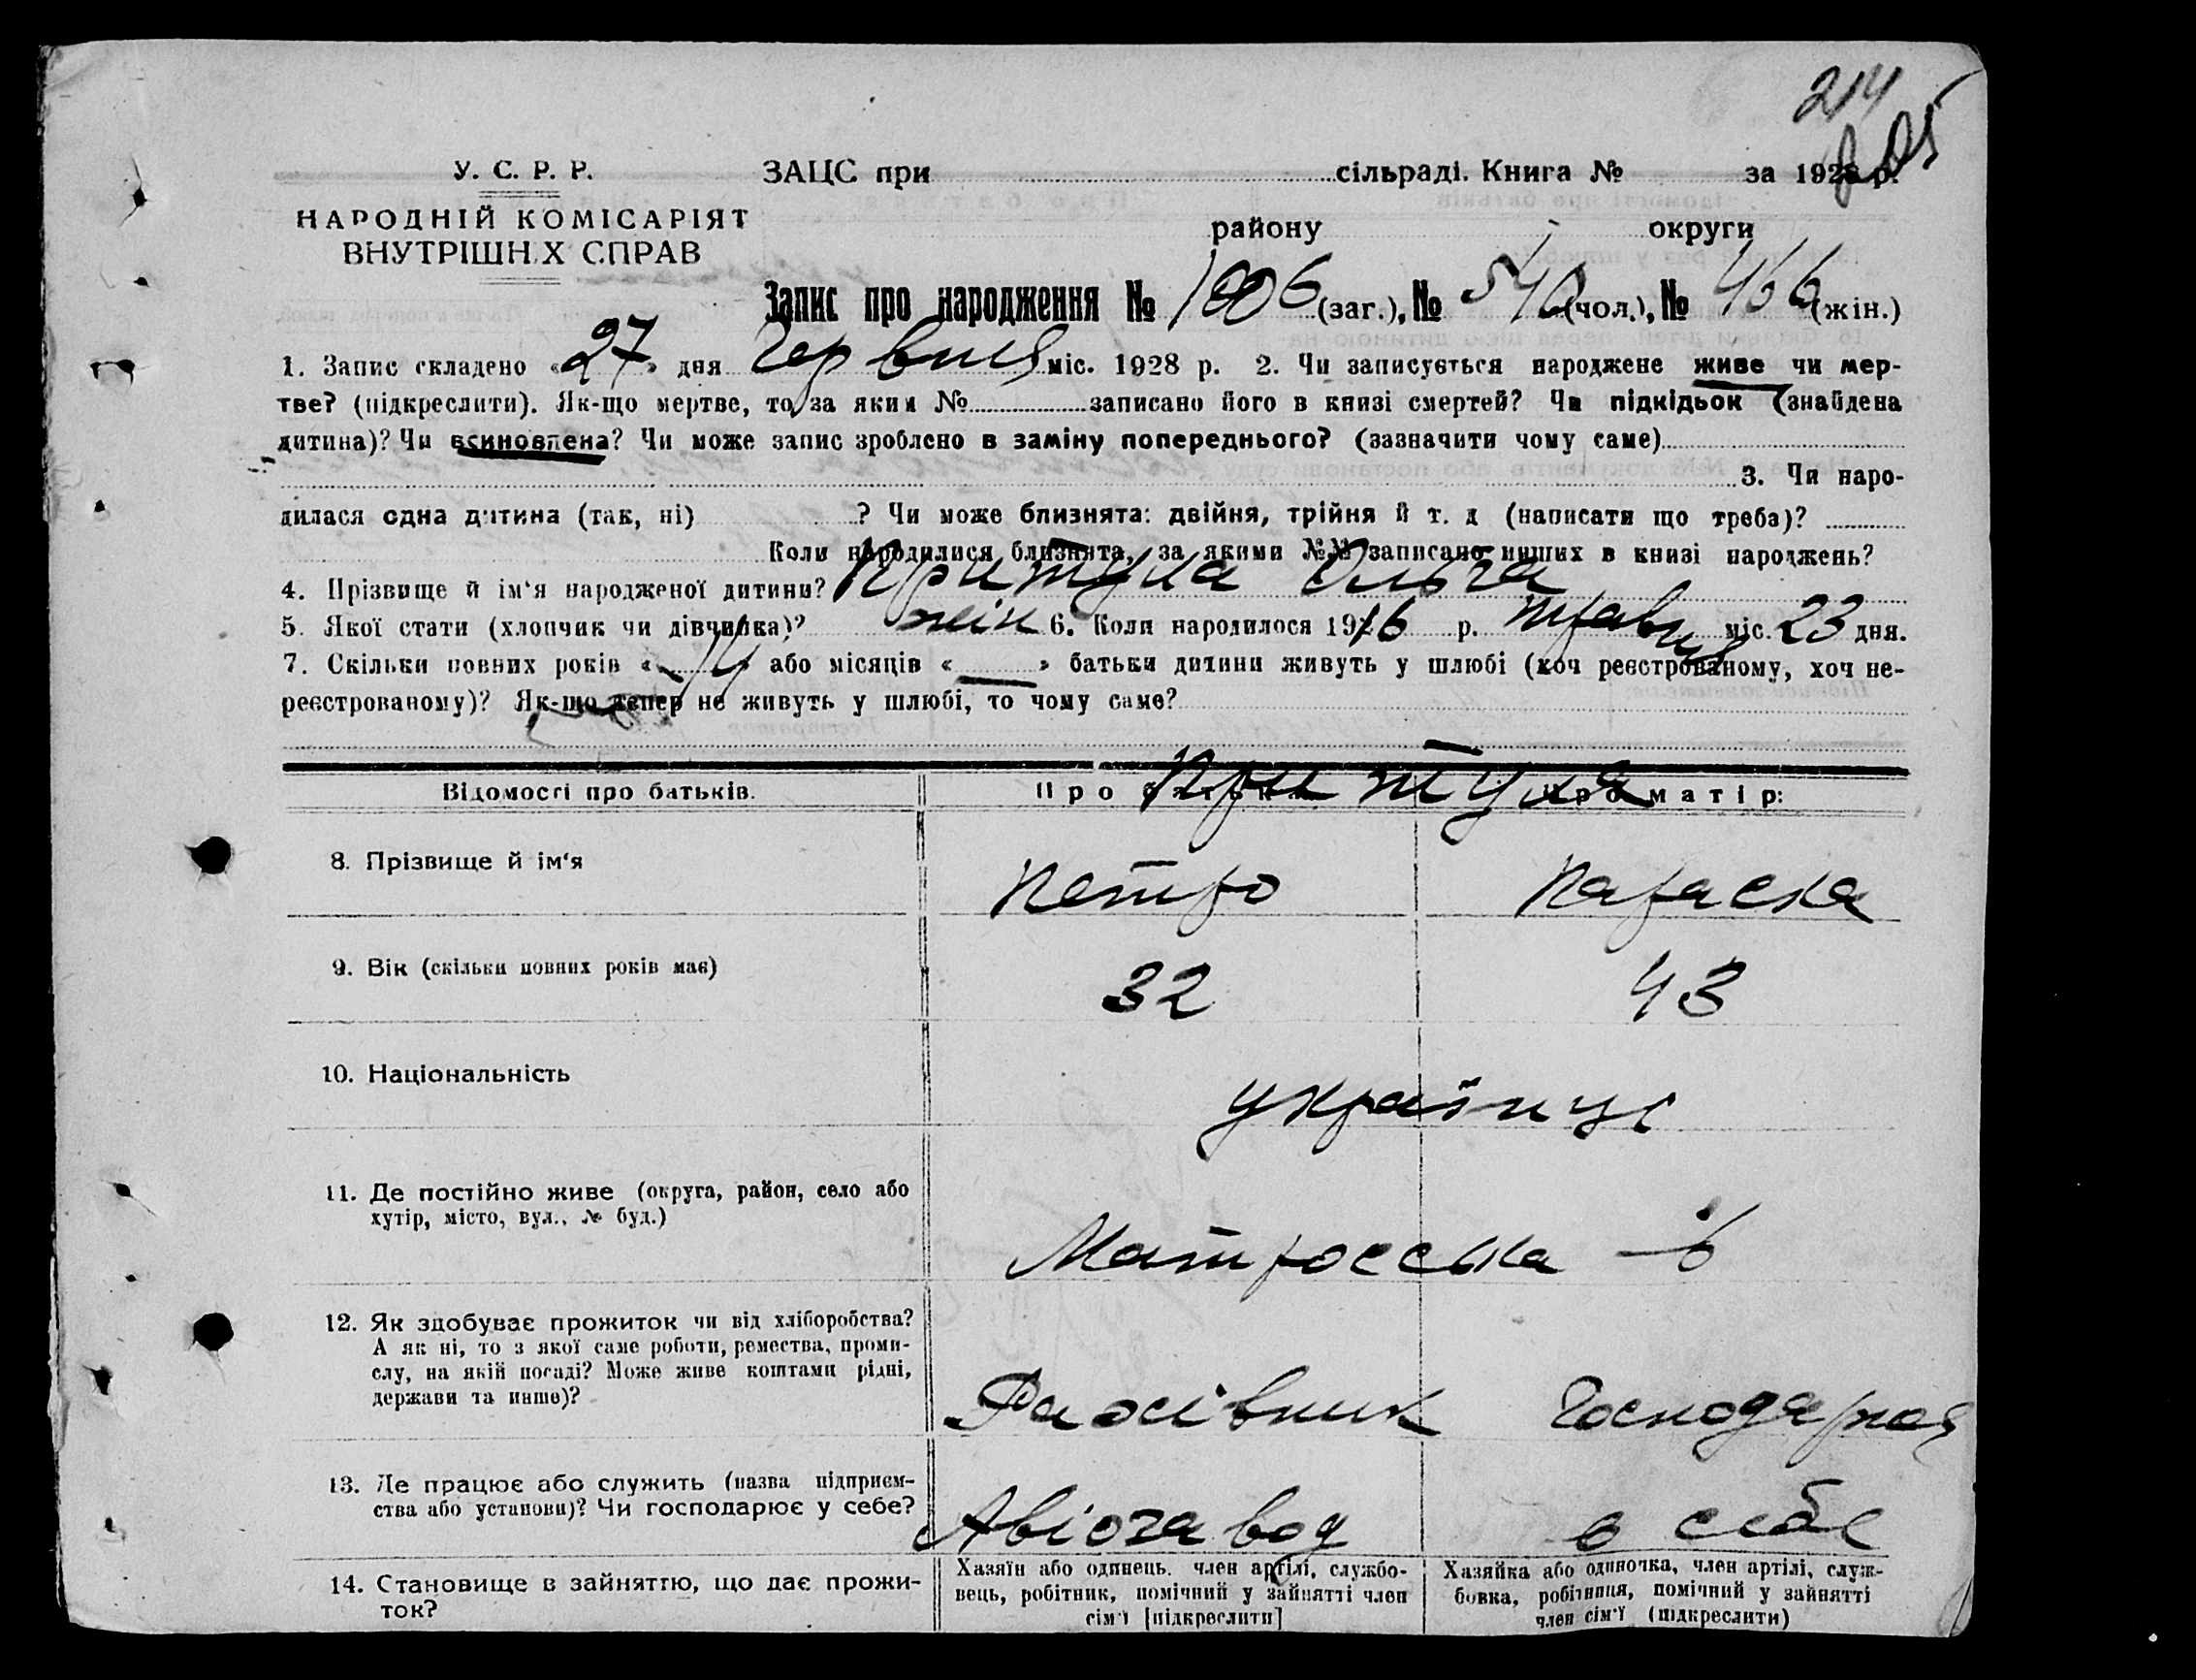 214
У. С. Р. Р. ЗАЦС при сільраді. Книга № за 1928 р.
НАРОДНІЙ КОМІСАРІЯТ
района округи
ВНУТРІШНІХ СПРАВ
Запис про народження № 1006 (заг.), № 540 (чол.), № 466 (жін.)
1. Запис складено «27» дня Червня міс. 1928 р. 2. Чи записується народжене живе чи мер-
тве? (підкреслити). Як-що мертве, то за яким № записано його в книзі смертей? Чи підкідьок (знайдена
дитина)? Чи всиновлена? Чи може запис зроблено в заміну попереднього? (зазначити чому саме)
3. Чи наро-
дилася одна дитина (так, ні) ? Чи може близнята: двійня, трійня й т. д (написати що треба)?
Коли народилися близнята, за якими №№ записано инших в книзі народжень?
4. Прізвище й ім'я народженої дитини? Притула Ольга
5. Якої стати (хлопчик чи дівчинка)? жін 6. Коли народилося 1916 р. травня міс. 23 дня.
7. Скільки повних років «14» або місяців « » батьки дитини живуть у шлюбі (хоч реєстрованому, хоч не-
реєстрованому)? Як-що тепер не живуть у шлюбі, то чому саме?
Притула
Відомості про батьків. Про батька: Про матір:
8. Прізвище й ім'я Петро Параска
9. Вік (скільки повних років має) 32 43
10. Національність українці
11. Де постійно живе (округа, район, село або
хутір, місто, вул., № буд.) Матросська 6
12. Як здобуває прожиток чи від хліборобства?
А як ні, то з якої саме роботи, ремества, проми-
слу, на якій посаді? Може живе коштами рідні,
держави та инше)? Рахівник Господарная
13. Де працює або служить (назва підприєм-
ства або установи)? Чи господарює у себе? Авіозавод в себе
14. Становище в зайняттю, що дає прожи-
ток?
Хазяїн або одинець. член артілі, службо-
вець, робітник, помічний у зайнятті член
сім'ї [підкреслити]
Хазяйка або одиночка, член артілі, служ-
бовка, робітниця, помічний у зайнятті
член сім'ї (підкреслити)